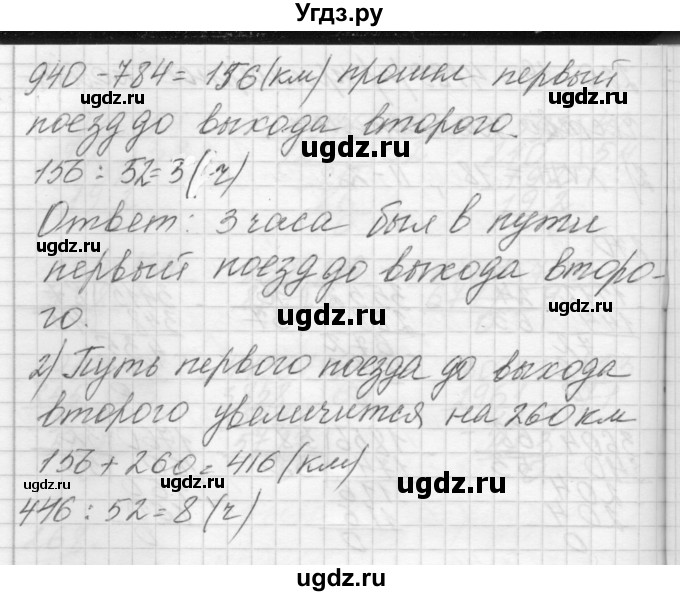 Угдз.ру
940 - 784 = 156 (км) прошел первый
поезд до выхода второго.
156 : 52 = 3 ( ч)
Ответ: 3 часа был в пути
первый поезд до выхода второ-
го.
2) Путь первого поезда до выхода
второго увеличится на 260 км
156 + 260 = 416 (км)
416 : 52 = 8 (ч)
ugdz.ru
ugdz.ru
ugdz.ru
ugdz.ru
ugdz.ru
ugdz.ru
ugdz.ru
ugdz.ru
ugdz.ru
ugdz.ru
ugdz.ru
ugdz.ru